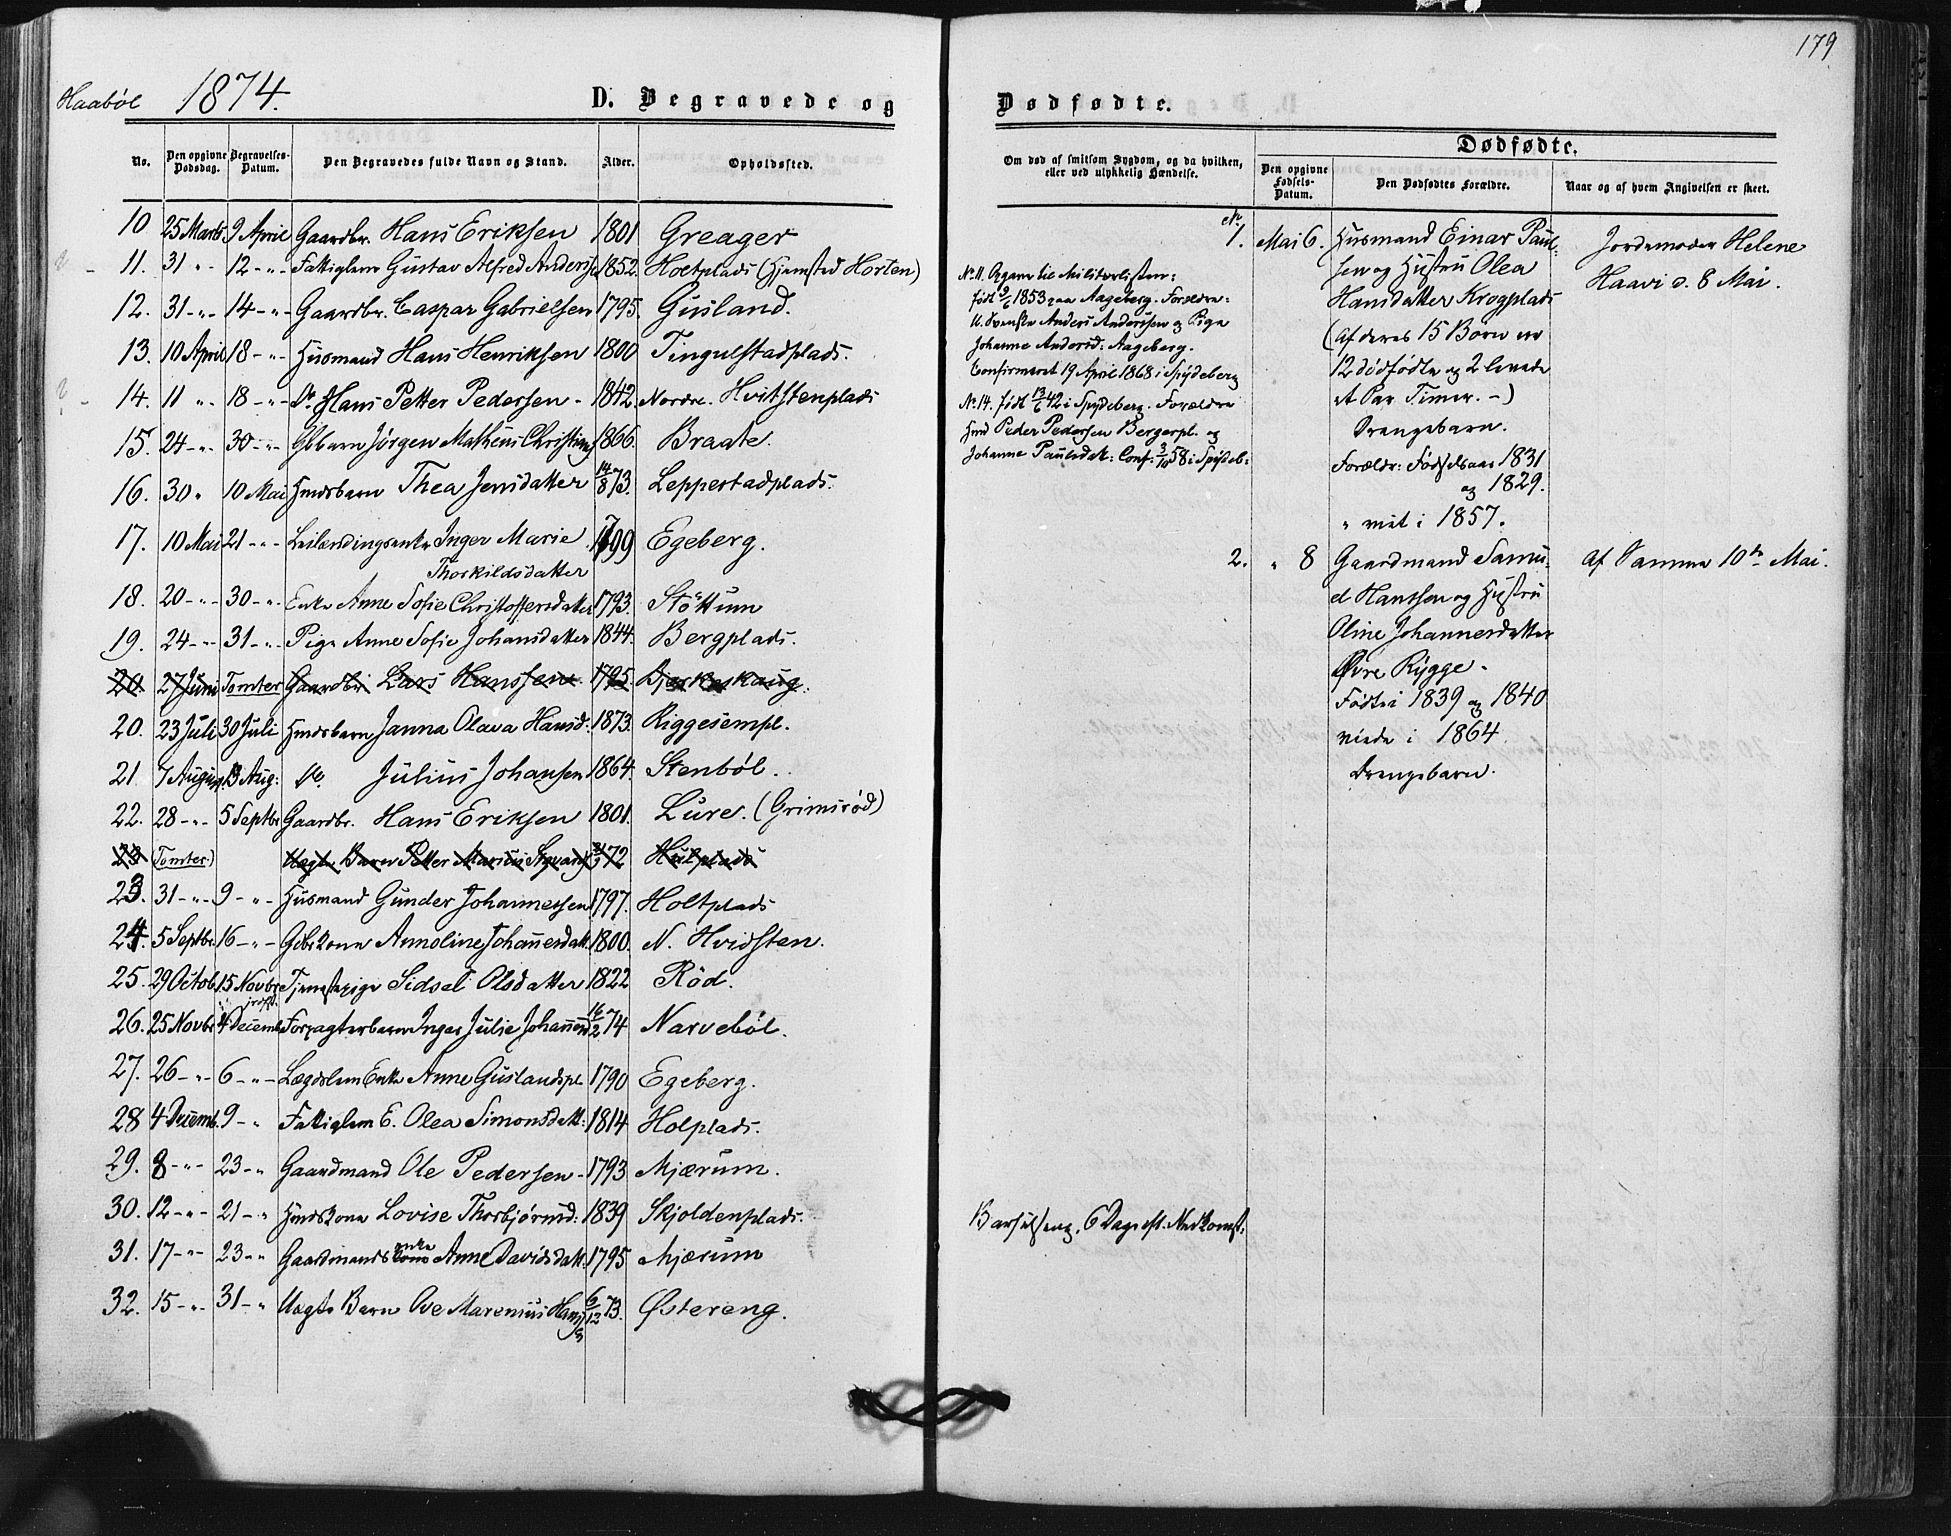 179
Haabøl 1874.
D. Begravede og Dødfødte.
No. Den opgivne Dødsdag. Begravelses-Datum. Den Begravedes fulde Navn og Stand. Alder. Opholdssted.
10 25 Marts 9 April Gaardbr. Hans Eriksen 1801 Greager
11. 31 -"- 12 -"- Fattiglem Gustav Alfred Anderss 1852. Holtplads (Hjemsted Horten)
12. 31 -"- 14 -"- Gaardbr. Caspar Gabrielsen 1795. Gusland.
13. 10 April 18 -"- Husmand Hans Henriksen 1800 Tingulstadplads.
14. 11 " 18 -"- Do Hans Petter Pedersen - 1842. Nordre Hvitstenplads
15. 24 -"- 30 -"- Gbbarn Jörgen Matheus Christians 1866. Braate.
16. 30 " 10 Mai Hmdsbarn Thea Jensdatter 14/8 73. Leppestadplads.
17. 10 Mai 21 -"- Leilændingsenke Inger Marie 1799 Egeberg.
Thorkildsdatter
18. 20 -"- 30 -"- Enke Anne Sofie Christoffersdatter 1793. Stöttum
19. 24 -"- 31 -"- Pige Anne Sofie Johansdatter 1844. Bergplads.
20 27 Juni Tomter Gaardbr. Lars Hanssen 1795.
20. 23 Juli 30 Juli Hmdsbarn Janna Olava Hansd: 1873. Riggesempl.
21. 7 August Aug: Do. Julius Johansen 1864. Stenböl.
22. 28 -"- 5 Septbr Gaardbr. Hans Eriksen 1801. Lure. (Grimsröd)
23 (Tomter) Uægte Barn Petter Marius 72
23. 31 -"- 9 -"- Husmand Gunder Johannessen 1797. Holtplads
24. 5 Septbr. 16 -"- Gbrkone Annoline Johannesdatt. 1800. N. Hvidsten.
25. 29 Octob. 15 Novbr Tjenestepige Sidsel Olsdatter 1822 Röd.
26. 25 Novbr 4 Decemb. Forpagterbarn Inger Julie Johannsd 16/2 74 Narveböl.
27. 26 -"- 6 -"- Lægdslem Enke Anne Guslandspl. 1790 Egeberg.
28 4 Decemb. 9 -" Fattiglem E. Olea Simonsdatt: 1814 Holplads.
29. 8 -"- 23 -" Gaardmand Ole Pedersen - 1793 Mjærum.
30. 12 -"- 21 -" Hmdskone Lovise Thorbjörnsd: 1839 Skjoldenplads.
31. 17 -"- 23 -" Gaardmands kone enke Anne Davidsdatt. 1795 Mjærum
32. 15 -"- 31 -" Uægte Barn Ove Marenius Hans 6/12 73. Østereng.
Om død af smitsom Sygdom, og da hvilken, eller ved ulykkelig Hændelse.
No 11. Opgave til Militærlisten:
født 1853 paa Aageberg. Forældre:
U. Svenske Anders Anderssen og Pige
Johanne Andersd: Aageberg.
Confirmeret 19 April 1868 i Spydeberg
No 14. født 13/6 42 i Spydeberg. Forældre
Hmd Peder Pedersen Bergerpl. og
Johanne Paulsdat: Conf: 3/10 58 i Spideb:
Barselseng, 6 Dage eft. Nedkomst.
Dødfødte.
Den opgivne Fødsels-Datum. Den Dødfødtes Forældre. Naar og af hvem Angivelsen er skeet.
1. Mai 6. Husmand Einar Paul-
sen og Hustru Olea
Hansdatter Krogplads
(Af deres 15 Børn er
12 dødfødte og 2 levede
et Par Timer. -)
Drengebarn.
Forældr: Fødselsaar 1831
og 1829.
" viet i 1857.
Jordemoder Helene
Haavi d. 8 Mai.
2. " 8 Gaardmand Samu-
el Hanssen og Hustru
Oline Johannesdatter
Øvre Rÿgge.
Født i 1839 og 1840
viede i 1864.
Drengebarn.
Af Samme 10de Mai.